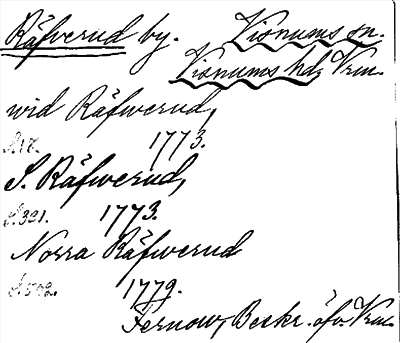 Räfverud by. Visnums sn.
Visnums hd, Vrm.
wid Räfwerud,
S. 17. 1773.
S. Räfwerud,
S. 321. 1773.
Norra Räfwerud
1779.
Fernow, Beskr. öfv. Vrm.